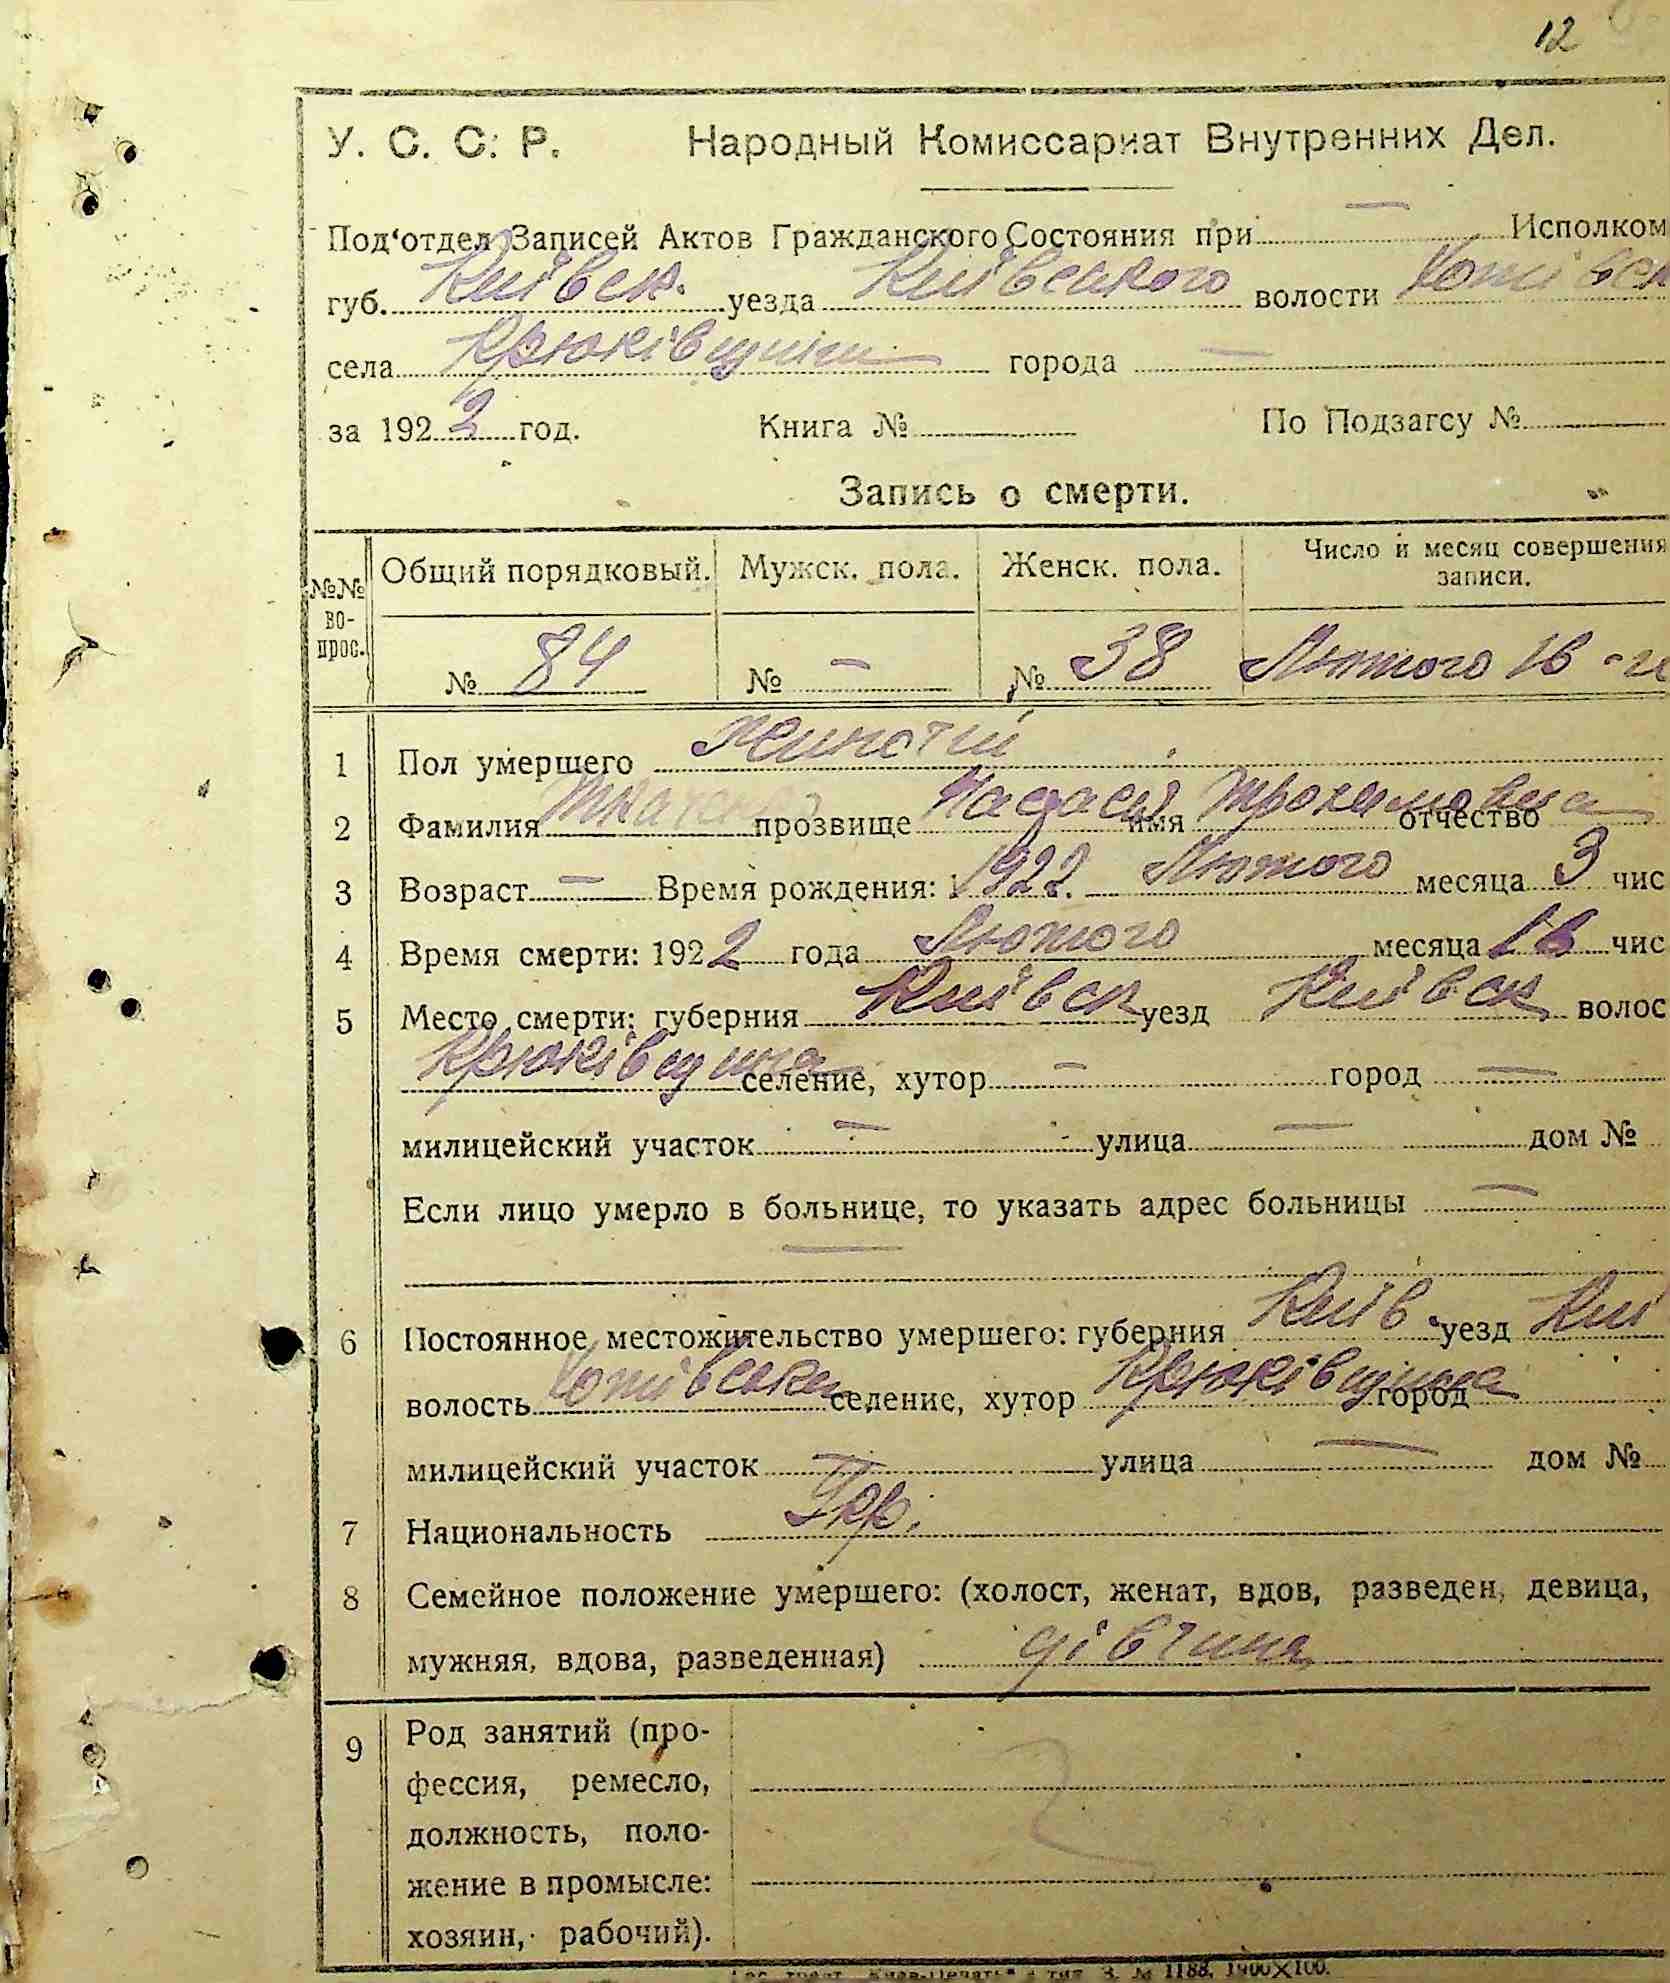 12
У. С. С. Р. Народный Комиссариат Внутренних Дел.
Под‘отдел Записей Актов Гражданского Состояния при — Исполком
губ. Київськ. уезда Київського волости Хотівськ
села Крюківщини города —
за 1922 год. Книга № По Подзагсу №
Запись о смерти.
№№ вопрос. Общий порядковый. Мужск. пола. Женск. пола. Число и месяц совершения записи.
№ 84 № — № 38 Лютого 16
1 Пол умершего
2 Фамилия Ткаченко прозвище имя Трохимовна отчество
3 Возраст — Время рождения: 1922. Лютого месяца 3 чис
4 Время смерти: 1922 года Лютого месяца 16 чис
5 Место смерти: губерния Київск уезд Київск волос
Крюківщина селение, хутор — город —
милицейский участок — улица — дом №
Если лицо умерло в больнице, то указать адрес больницы —
—
6 Постоянное местожительство умершего: губерния Київ. уезд Киї
волость Хотівська селение, хутор Крюківщина город
милицейский участок — улица — дом №
7 Национальность Укр.
8 Семейное положение умершего: (холост, женат, вдов, разведен, девица,
мужняя, вдова, разведенная) дівчина
9 Род занятий (про-
фессия, ремесло,
должность, поло-
жение в промысле:
хозяин, рабочий).
З. № 1188. 1900×100.